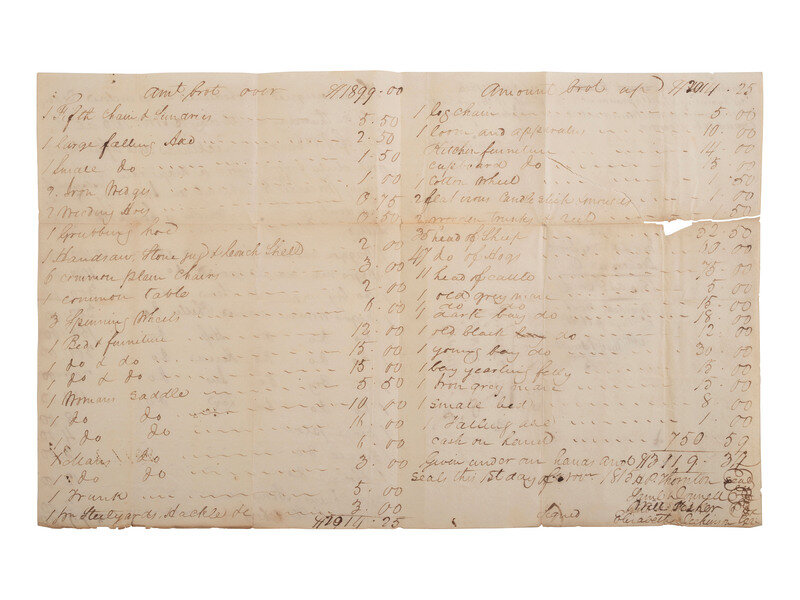 Amt brot over $1899.00
1 Fifth Chain & Sundries 5.50
1 Large falling Axe 2.50
1 Smale do 1.50
2 Iron Wedges 1.00
2 Weeding Hoes 0.75
1 Grubbing hoe 0.50
1 Handsaw Stone jug & 2.00
6 common plain Chairs 3.00
1 common table 2.00
3 Spinning Wheels 6.00
1 Bed & furniture 12.00
1 do & do 15.00
1 do & do 15.00
1 Womans Saddle 5.50
1 do do 10.00
1 do do 16.00
1 Mans do 6.00
1 do do 3.00
1 Trunk 5.00
1 pr Steelyards Hackle &c 3.00
$2014.25
Amount brot up $2011.25
1 log chain 5.00
1 loom and apparatus 10.00
Kitchen furniture 14.00
cupboard do 15.00
1 Cotton Wheel 1.50
2 flat irons Candlestick & 1.00
2 wooden trunks & reel .50
35 head of Sheep 52.50
47 do of Hogs
11 head of cattle 75.00
1 old grey mare 5.00
1 dark bay do 15.00
18.00
1 old black do 12.00
1 young bay do 30.00
1 bay yearling filly 15.00
1 Iron grey mare 15.00
1 smale bed 8.00
1 Falling axe 1.00
cash on hand 750.59
$3119.37
Given under our hands and
seals this 1st day of Novr 181 Thornton Seal
Signed